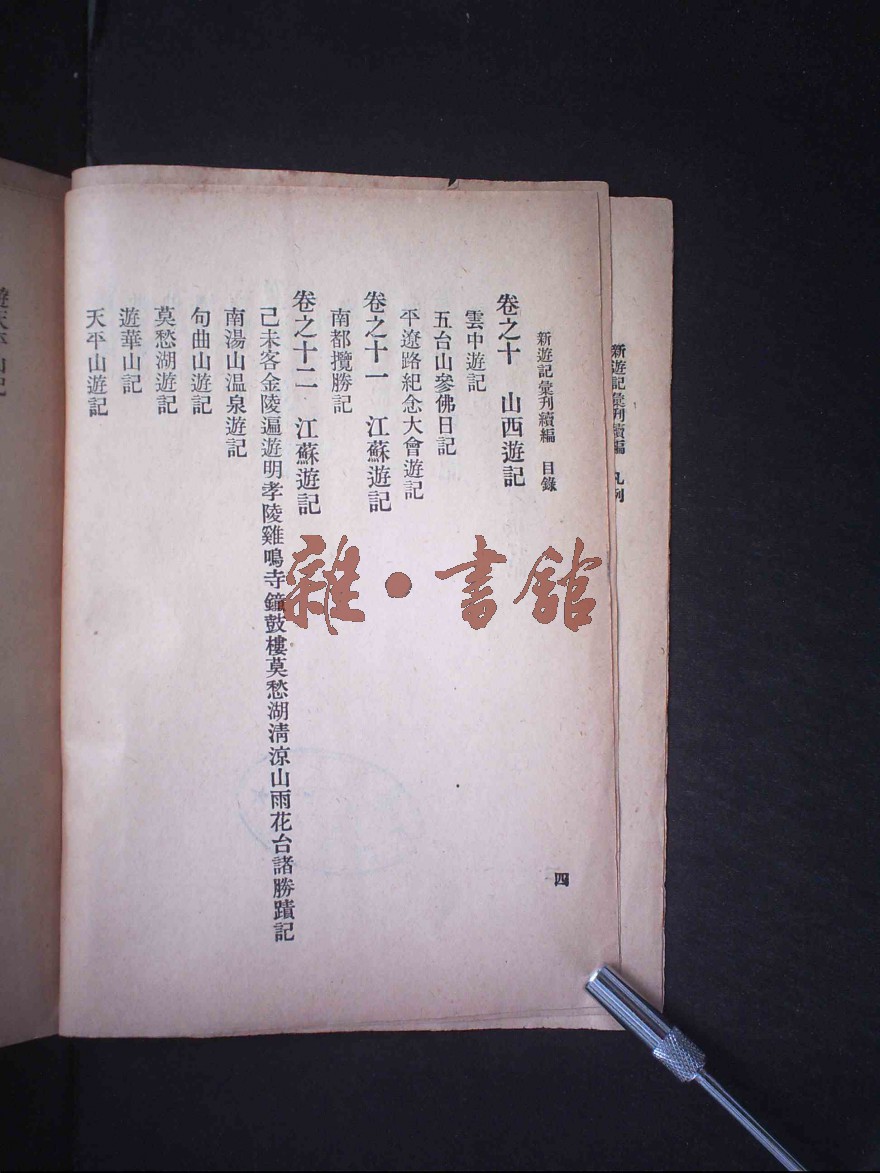 新遊記彙刊續編　凡例
新遊記彙刊續編　目錄
四
卷之十　山西遊記
雲中遊記
五台山參佛日記
平遼路紀念大會遊記
卷之十一　江蘇遊記
南都攬勝記
卷之十二　江蘇遊記
己未客金陵遍遊明孝陵雞鳴寺鐘鼓樓莫愁湖淸涼山雨花台諸勝蹟記
南湯山温泉遊記
句曲山遊記
莫愁湖遊記
遊華山記
天平山遊記
遊天平山記
雜·書館